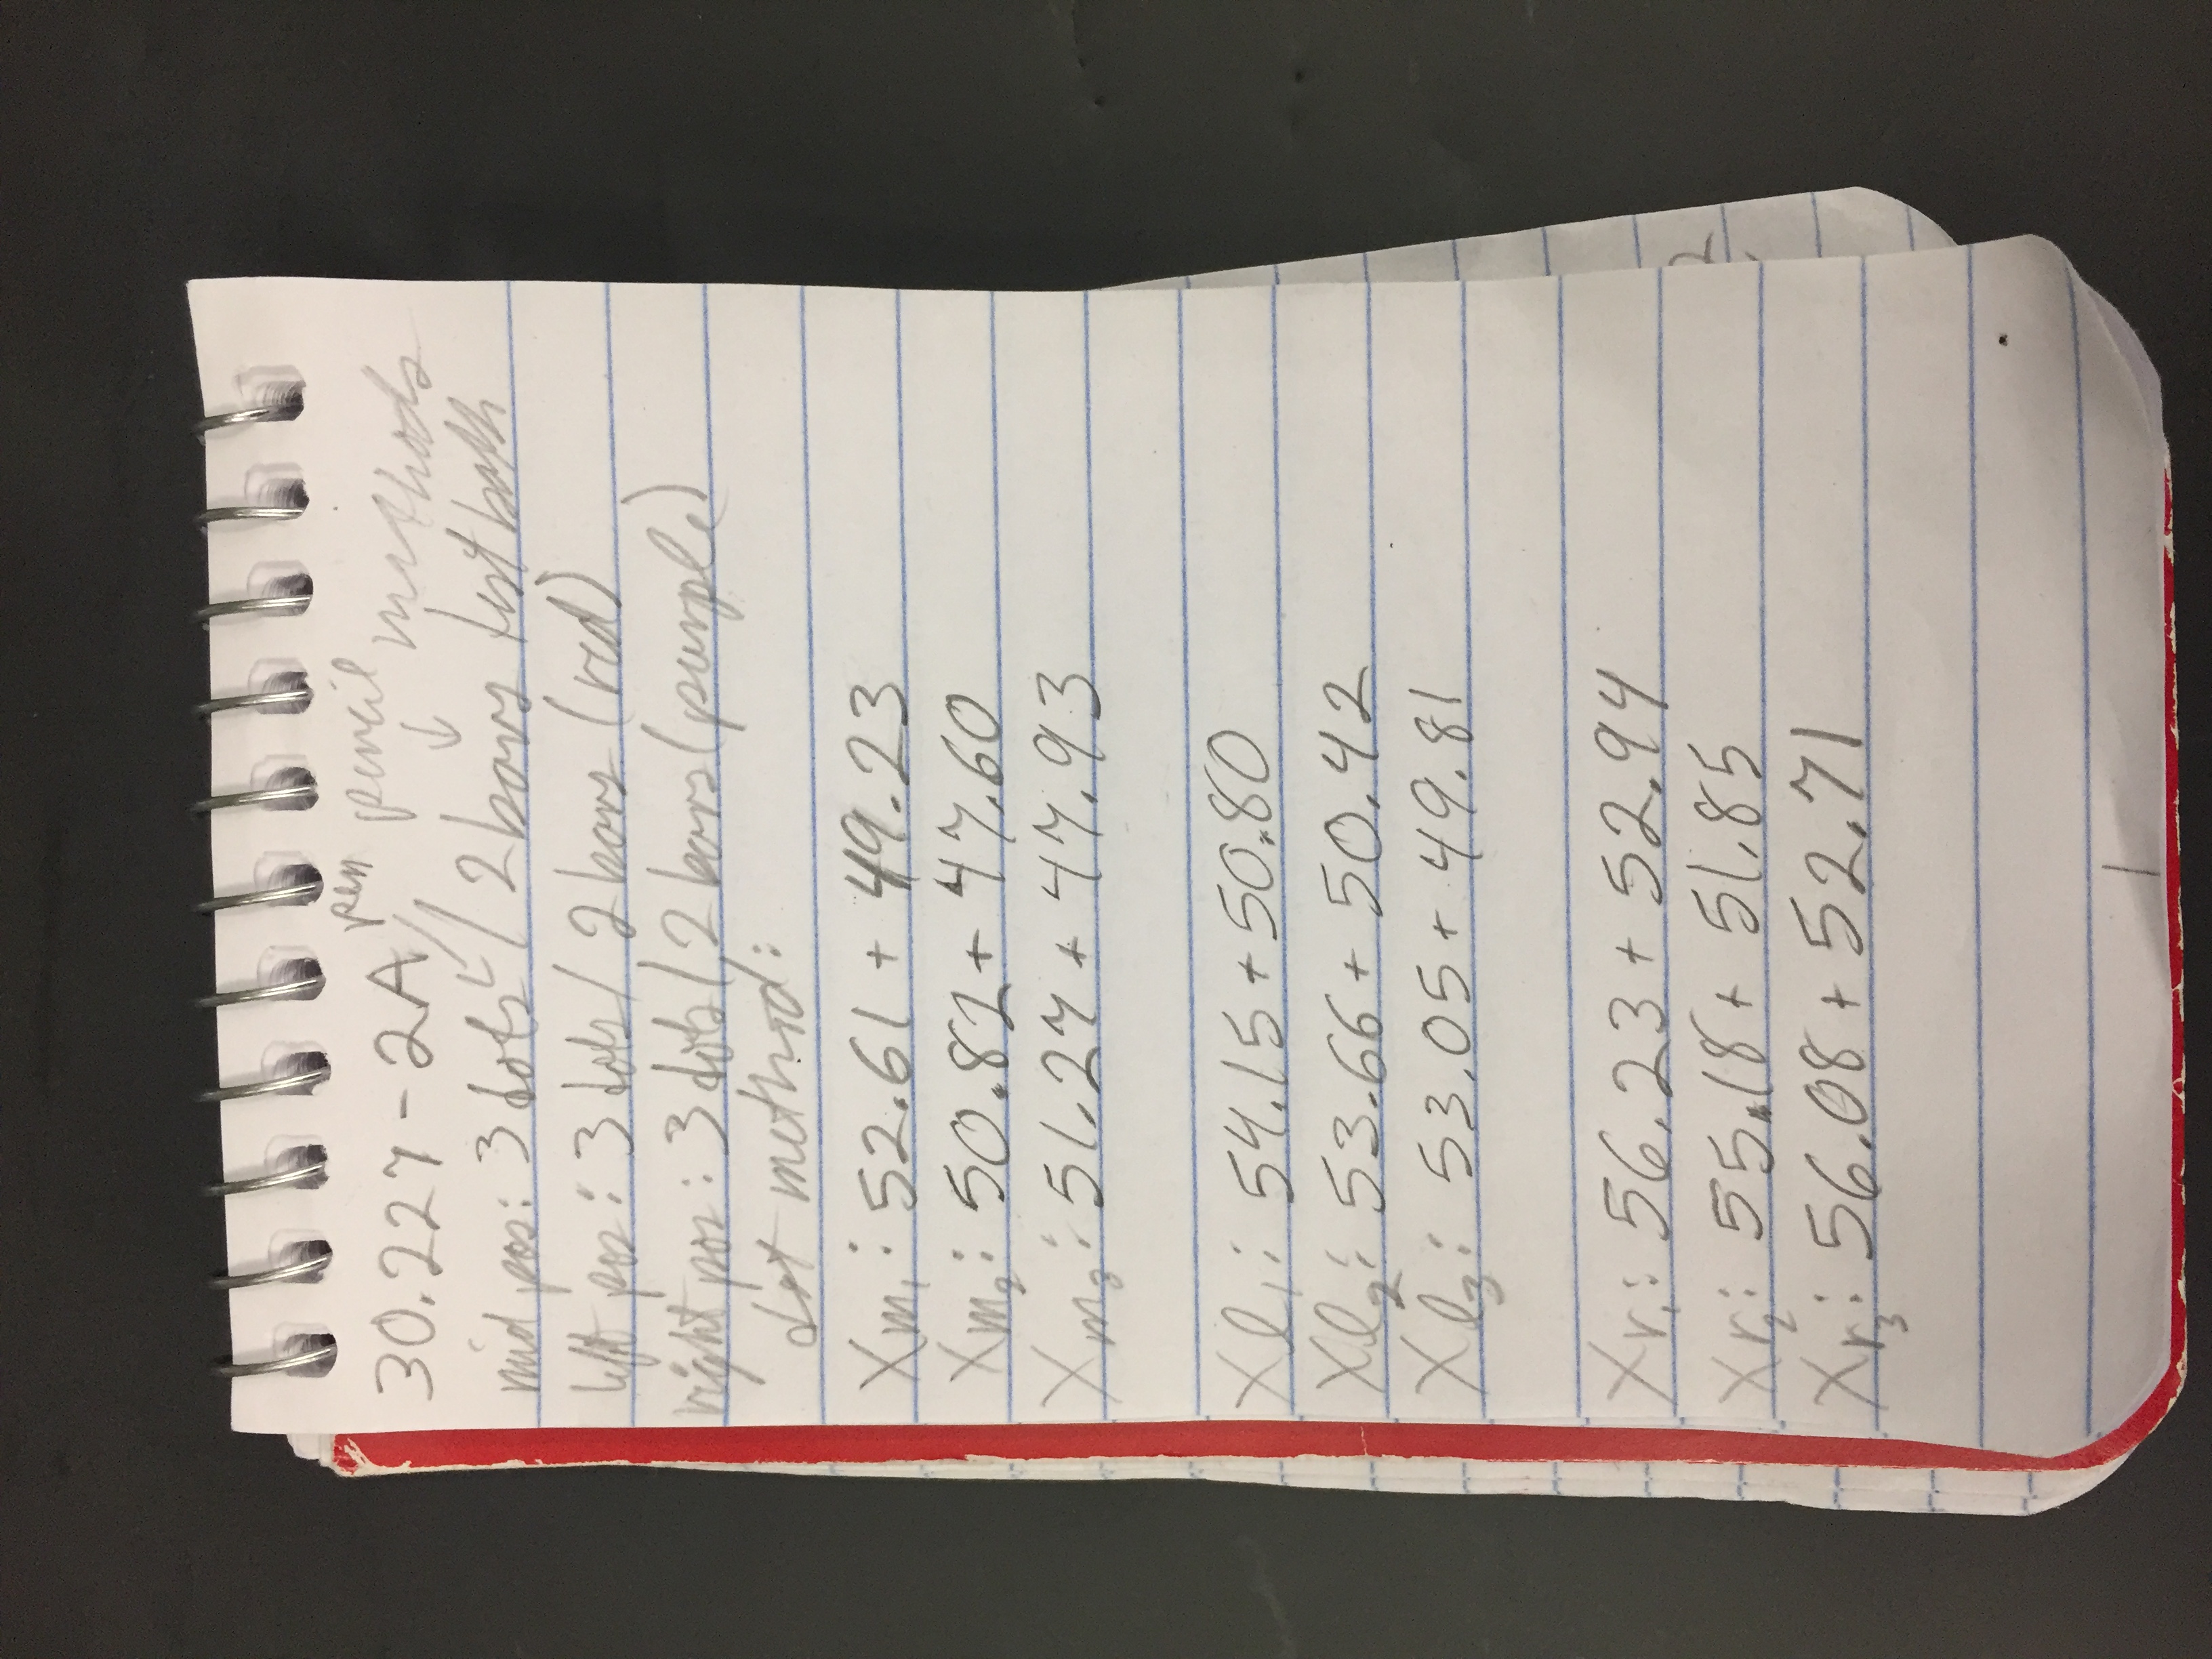 pen pencil methods
30.227-2A
mid pos: 3 dots / 2 bars test both
left pos: 3 dots / 2 bars (red)
right pos: 3 dots / 2 bars (purple)
dot method:
Xm₁: 52.61 + 49.23
Xm₂: 50.82 + 47.60
Xm₃: 51.27 + 47.93
Xl₁: 54.15 + 50.80
Xl₂: 53.66 + 50.42
Xl₃: 53.05 + 49.81
Xr₁: 56.23 + 52.94
Xr₂: 55.18 + 51.85
Xr₃: 56.08 + 52.71
1
2